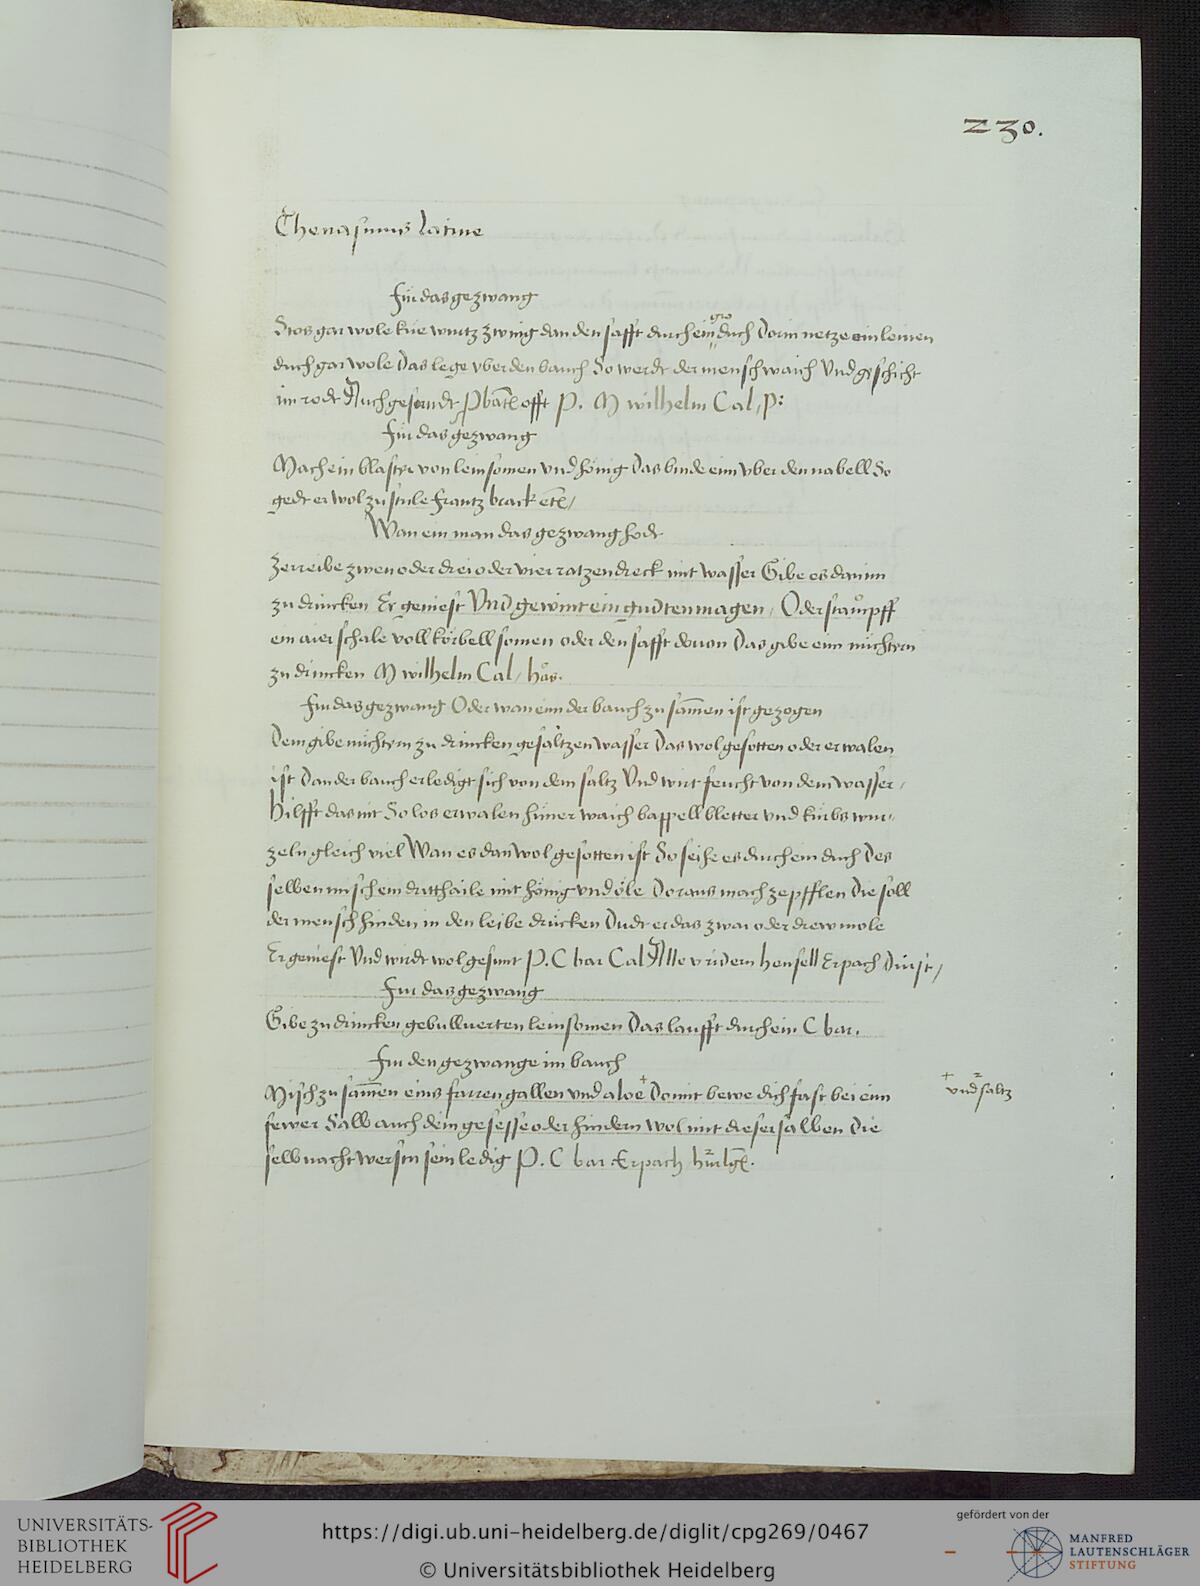 230.
Thenasmus Latine
Fur das gezwang
Stos gar wole krie wurtz zwing dan den safft durch ein gro duch Dorin netze ein leinen
duch gar wole Das lege vber den bauch So werdt der mensch waich Und geschicht
im rodt Auch gesundt Pbatum offt P. M wilhelm Cal, p:
Fur das gezwang
Mach ein blaster von leinsomen vnd honig Das binde eim vber den nabell So
gedt er wol zu stule Frantz brack etc,
Wan ein man das gezwang hodt
Zerreibe zwen oder drei oder vier ratzendreck mit wasser Gibe es danim
zu drincken Er geniest Und gewint ein gudten magen, Oder stampff
ein aier schale voll körbell somen oder den safft dauon Das gibe eim nuchtern
zu drincken M wilhelm Cal, has.
Fur das gezwang Oder wan eim der bauch zu samen ist gezogen
Dem gibe nuchtern zu drincken gesaltzen wasser Das wol gesotten oder erwalen
ist Dan der bauch erledigt sich von dem saltz Und wirt feucht von dem wasser,
Hilfft das nit So los erwalen hüner waich bappell bletter vnd kürbs wur-
zeln gleich viel Wan es dan wol gesotten ist So seihe es durch ein duch Des
selben misch ein dritthaile mit honig vnd öle Doraus mach zepfflen Die soll
der mensch hinden in den leibe drucken Dudt er das zwai oder drew mole
Er geniest Und wirdt wol gesunt P. C bar Cal Alle vridem hensell Erpach Durst,
Fur das gezwang
Gibe zu drincken gebulluerten leinsomen Das laufft durch ein C bar.
Fur den gezwange im bauch
Misch zu samen eins farren gallen vnd aloe + Domit bewe dich fast bei eim
+ vnd saltz
fewer Salb auch dein gesesse oder hindern wol mit dieser salben Die
selb nacht werstu sein ledig P. C bar Erpach
UNIVERSITÄTS-
BIBLIOTHEK
HEIDELBERG
https://digi.ub.uni-heidelberg.de/diglit/cpg269/0467
© Universitätsbibliothek Heidelberg
gefördert von der
MANFRED
LAUTENSCHLÄGER
STIFTUNG